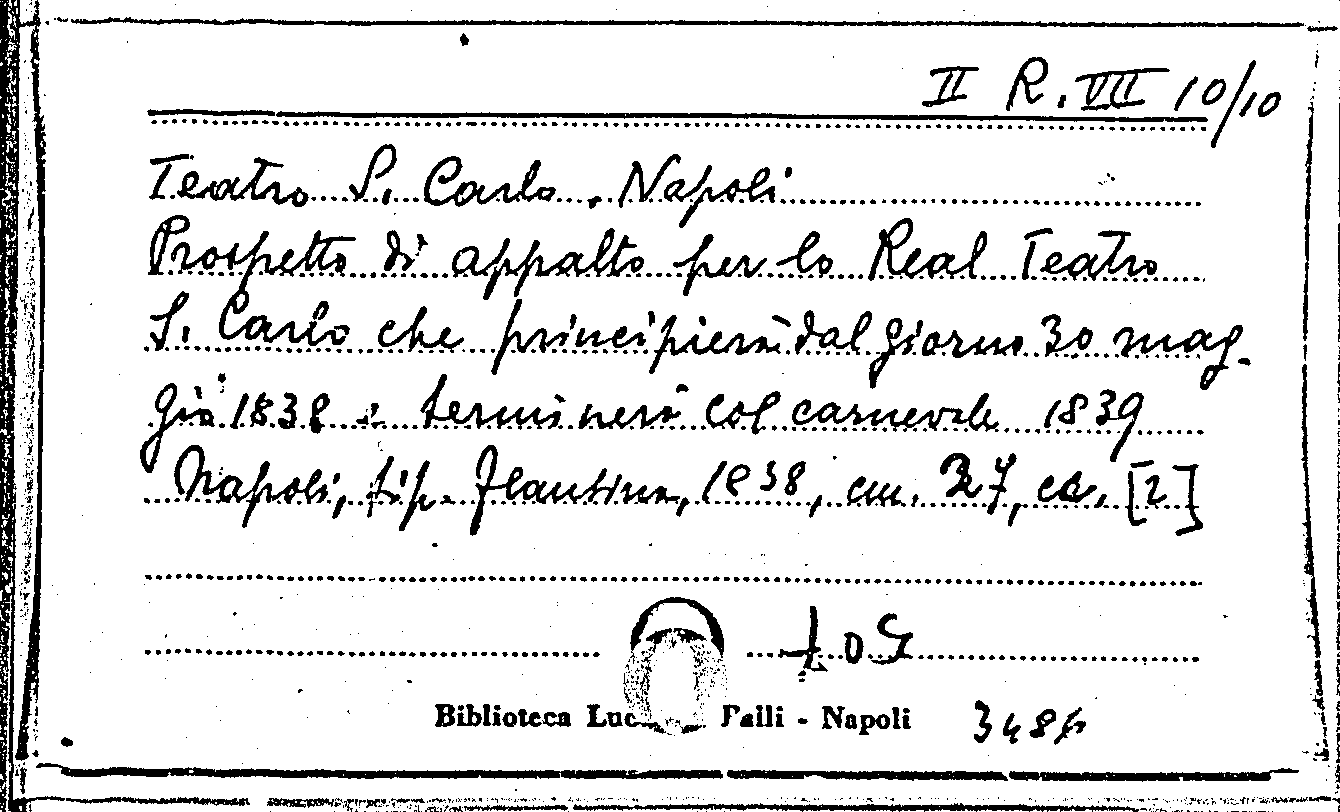 II R. VII 10/10
Teatro S. Carlo. Napoli
Prospetto di appalto per lo Real Teatro
S. Carlo che principierà dal giorno 30 mag-
gio 1838 e terminerà col carnevale 1839
Napoli, tip. Flautina, 1838, cm. 27, ca. [2]
Biblioteca Palli - Napoli